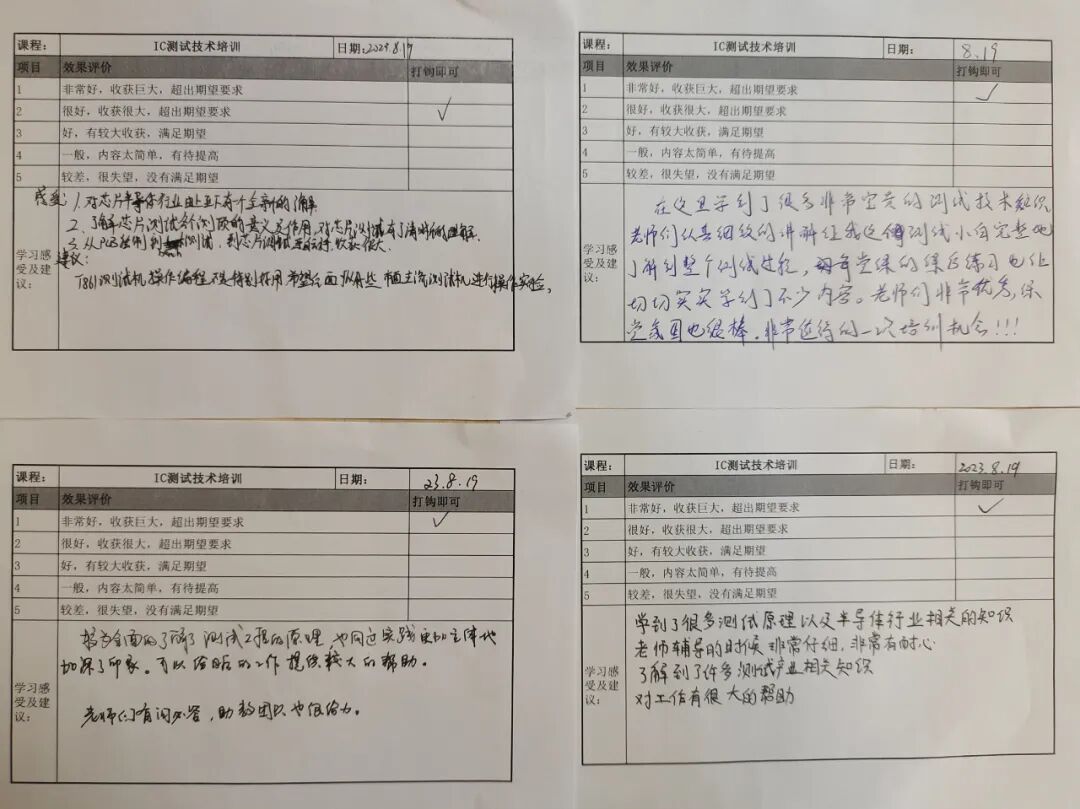 课程： IC测试技术培训 日期：2023.8.19
项目 效果评价 打钩即可
1 非常好，收获巨大，超出期望要求
2 很好，收获很大，超出期望要求 ✓
3 好，有较大收获，满足期望
4 一般，内容太简单，有待提高
5 较差，很失望，没有满足期望
学习感受及建议：
感受：1.对芯片半导体行业由上至下有个全新的了解
2.了解芯片测试各个阶段的意义及作用，对芯片测试有了清晰的理解
3.从PCB绘制到测试，到芯片调试运行，收获很大。
建议：
T861测试机操作编程不是特别好用，希望后面市面主流测试机进行操作实验。
课程： IC测试技术培训 日期： 8.19
项目 效果评价 打钩即可
1 非常好，收获巨大，超出期望要求 ✓
2 很好，收获很大，超出期望要求
3 好，有较大收获，满足期望
4 一般，内容太简单，有待提高
5 较差，很失望，没有满足期望
学习感受及建议：
在这里学到了很多非常宝贵的测试技术知识
老师们认真细致的讲解让我这个测试小白完整地
了解到整个测试过程，每堂课的课后练习也让
切切实实学到了不少内容。老师们非常优秀，课
堂氛围也很棒。非常值得的一次培训机会！！！
课程： IC测试技术培训 日期： 23.8.19
项目 效果评价 打钩即可
1 非常好，收获巨大，超出期望要求 ✓
2 很好，收获很大，超出期望要求
3 好，有较大收获，满足期望
4 一般，内容太简单，有待提高
5 较差，很失望，没有满足期望
学习感受及建议：
较为全面的了解了测试工程的原理，也通过实践更加立体地
加深了印象。可以给后的工作提供较大的帮助。
老师们有问必答，助教团队也很给力。
课程： IC测试技术培训 日期： 2023.8.19
项目 效果评价 打钩即可
1 非常好，收获巨大，超出期望要求 ✓
2 很好，收获很大，超出期望要求
3 好，有较大收获，满足期望
4 一般，内容太简单，有待提高
5 较差，很失望，没有满足期望
学习感受及建议：
学到了很多测试原理以及半导体行业相关的知识
老师辅导的时候非常仔细，非常有耐心
了解到了许多测试产业相关知识
对工作有很大的帮助